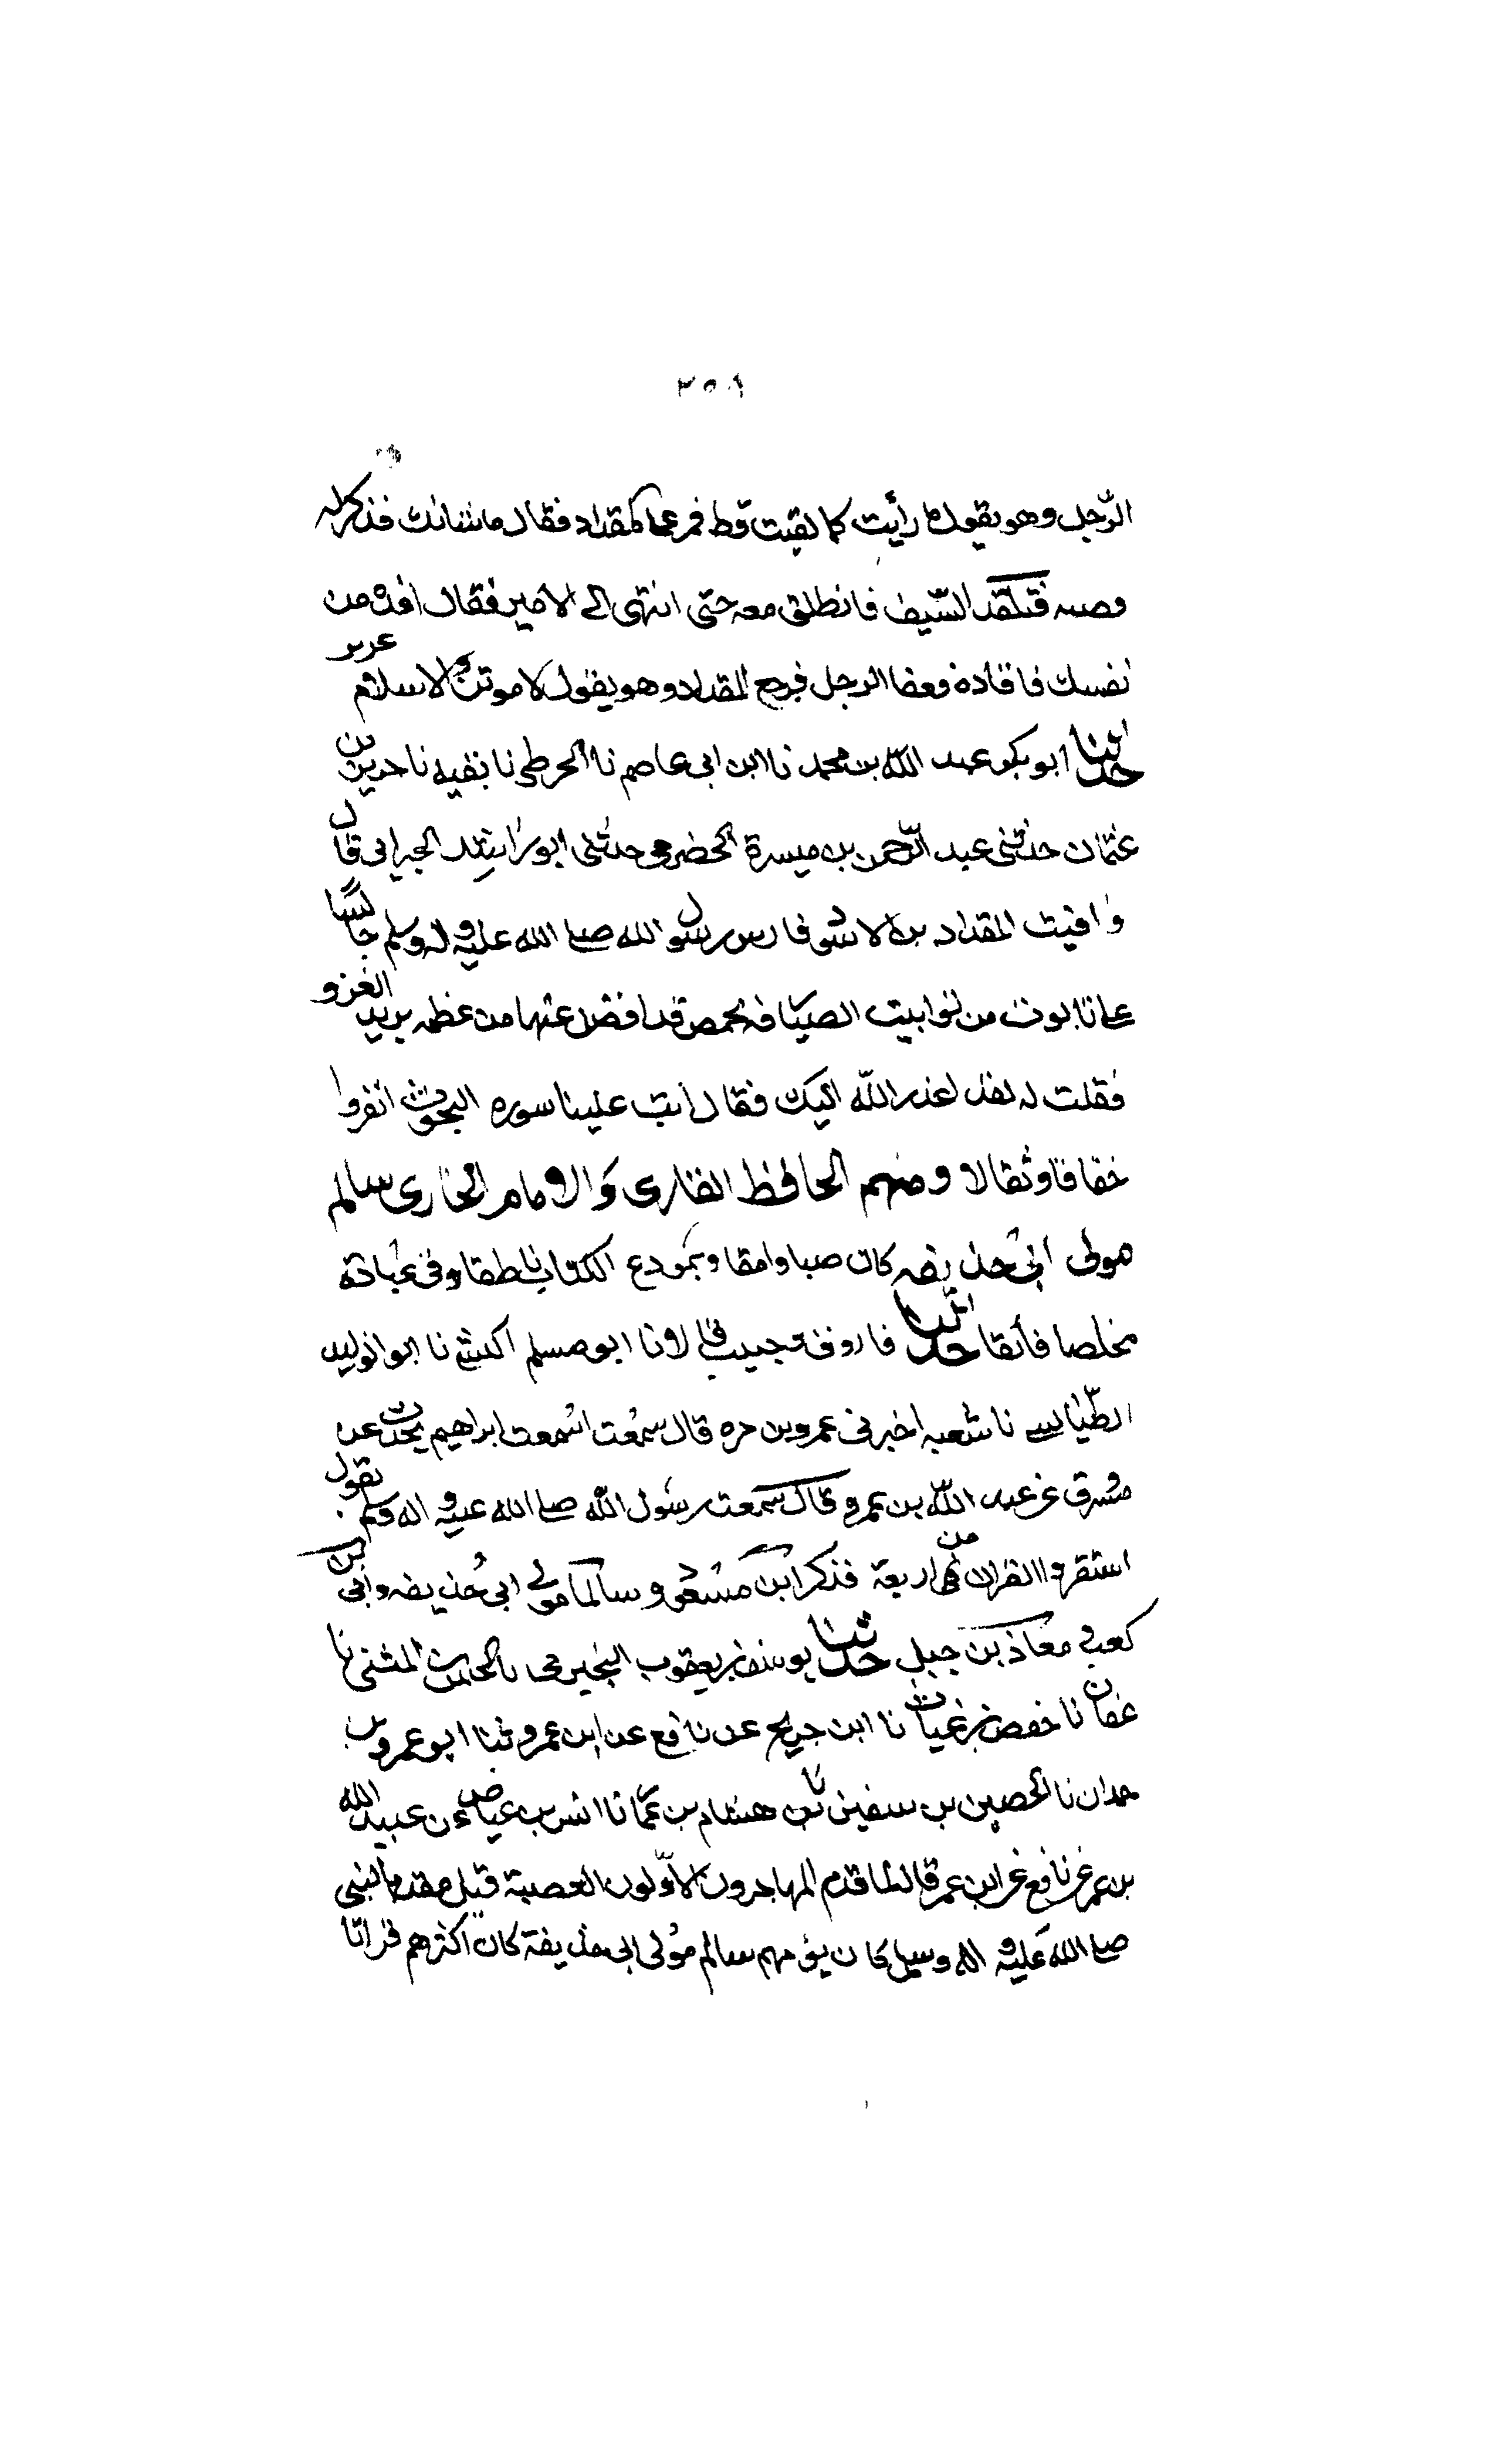 ٢٥٨
الرّجل وهو يقول ما رأيت كما لقيت قط فمر على المقداد فقال ما شانك فذكر له
قصه فتقلد السّيف فانطلق معه حتى انتهى الى الامير فقال اقده من
نفسك فاقاده فعفا الرجل فرجع المقداد وهو يقول لاموتن والاسلام عزيز
حدثنا ابو بكر عبد الله بن محمد نا ابن ابى عاصم نا الحوطى نا بقيه نا حريز بن
عثمان حدثنى عبد الرّحمن بن ميسرة الحضرمى حدثنى ابو راشد الحبرانى قال
وافيت المقداد بن الاسود فارس رسول الله صلى الله عليه واله وسلم جالسًا
على تابوت من توابيت الصيارفه بحمص قد افضل عنها من عظمه يريد الغزو
فقلت له لقد اعذر الله اليك فقال ابت علينا سوره البحوث انفروا
خفافا وثقالا ومنهم الحافظ القارى والامام البخارى سالم
مولى ابى حذيفه كان صبا وامقا وبمودع الكتاب ناطقا وفى عباده
مخلصا فأيقا حدثنا فاروق وحبيب قالا نا ابو مسلم الكشى نا ابو الوليد
الطّيالسى نا شعبه اخبرنى عمرو بن مره قال سمعت ابراهيم يحدث عن
مسرق عن عبد الله بن عمرو قال سمعت رسول الله صلى الله عليه واله وسلم يقول
استقروا القران من اربعة فذكر ابن مسعود وسالما مولى ابى حذيفه وابى بن
كعب و معاذ بن جبل حدثنا يوسف بن يعقوب النجيرمى نا الحسن بن المثنى نا
عفان نا حفص بن غياث نا ابن جريح عن نافع عن ابن عمر وثنا ابو عمرو بن
حمدان نا الحصين بن سفين نا هشام بن عمار نا انس بن عياض عن عبيد الله
بن عمر عن نافع عن ابن عمر قال لما قدم المهاجرون الاوّلون العصبة قبل مقدم النبى
صلى الله عليه واله وسلم كان يؤمهم سالم مولى ابى حذيفة كان اكثرهم قرانا